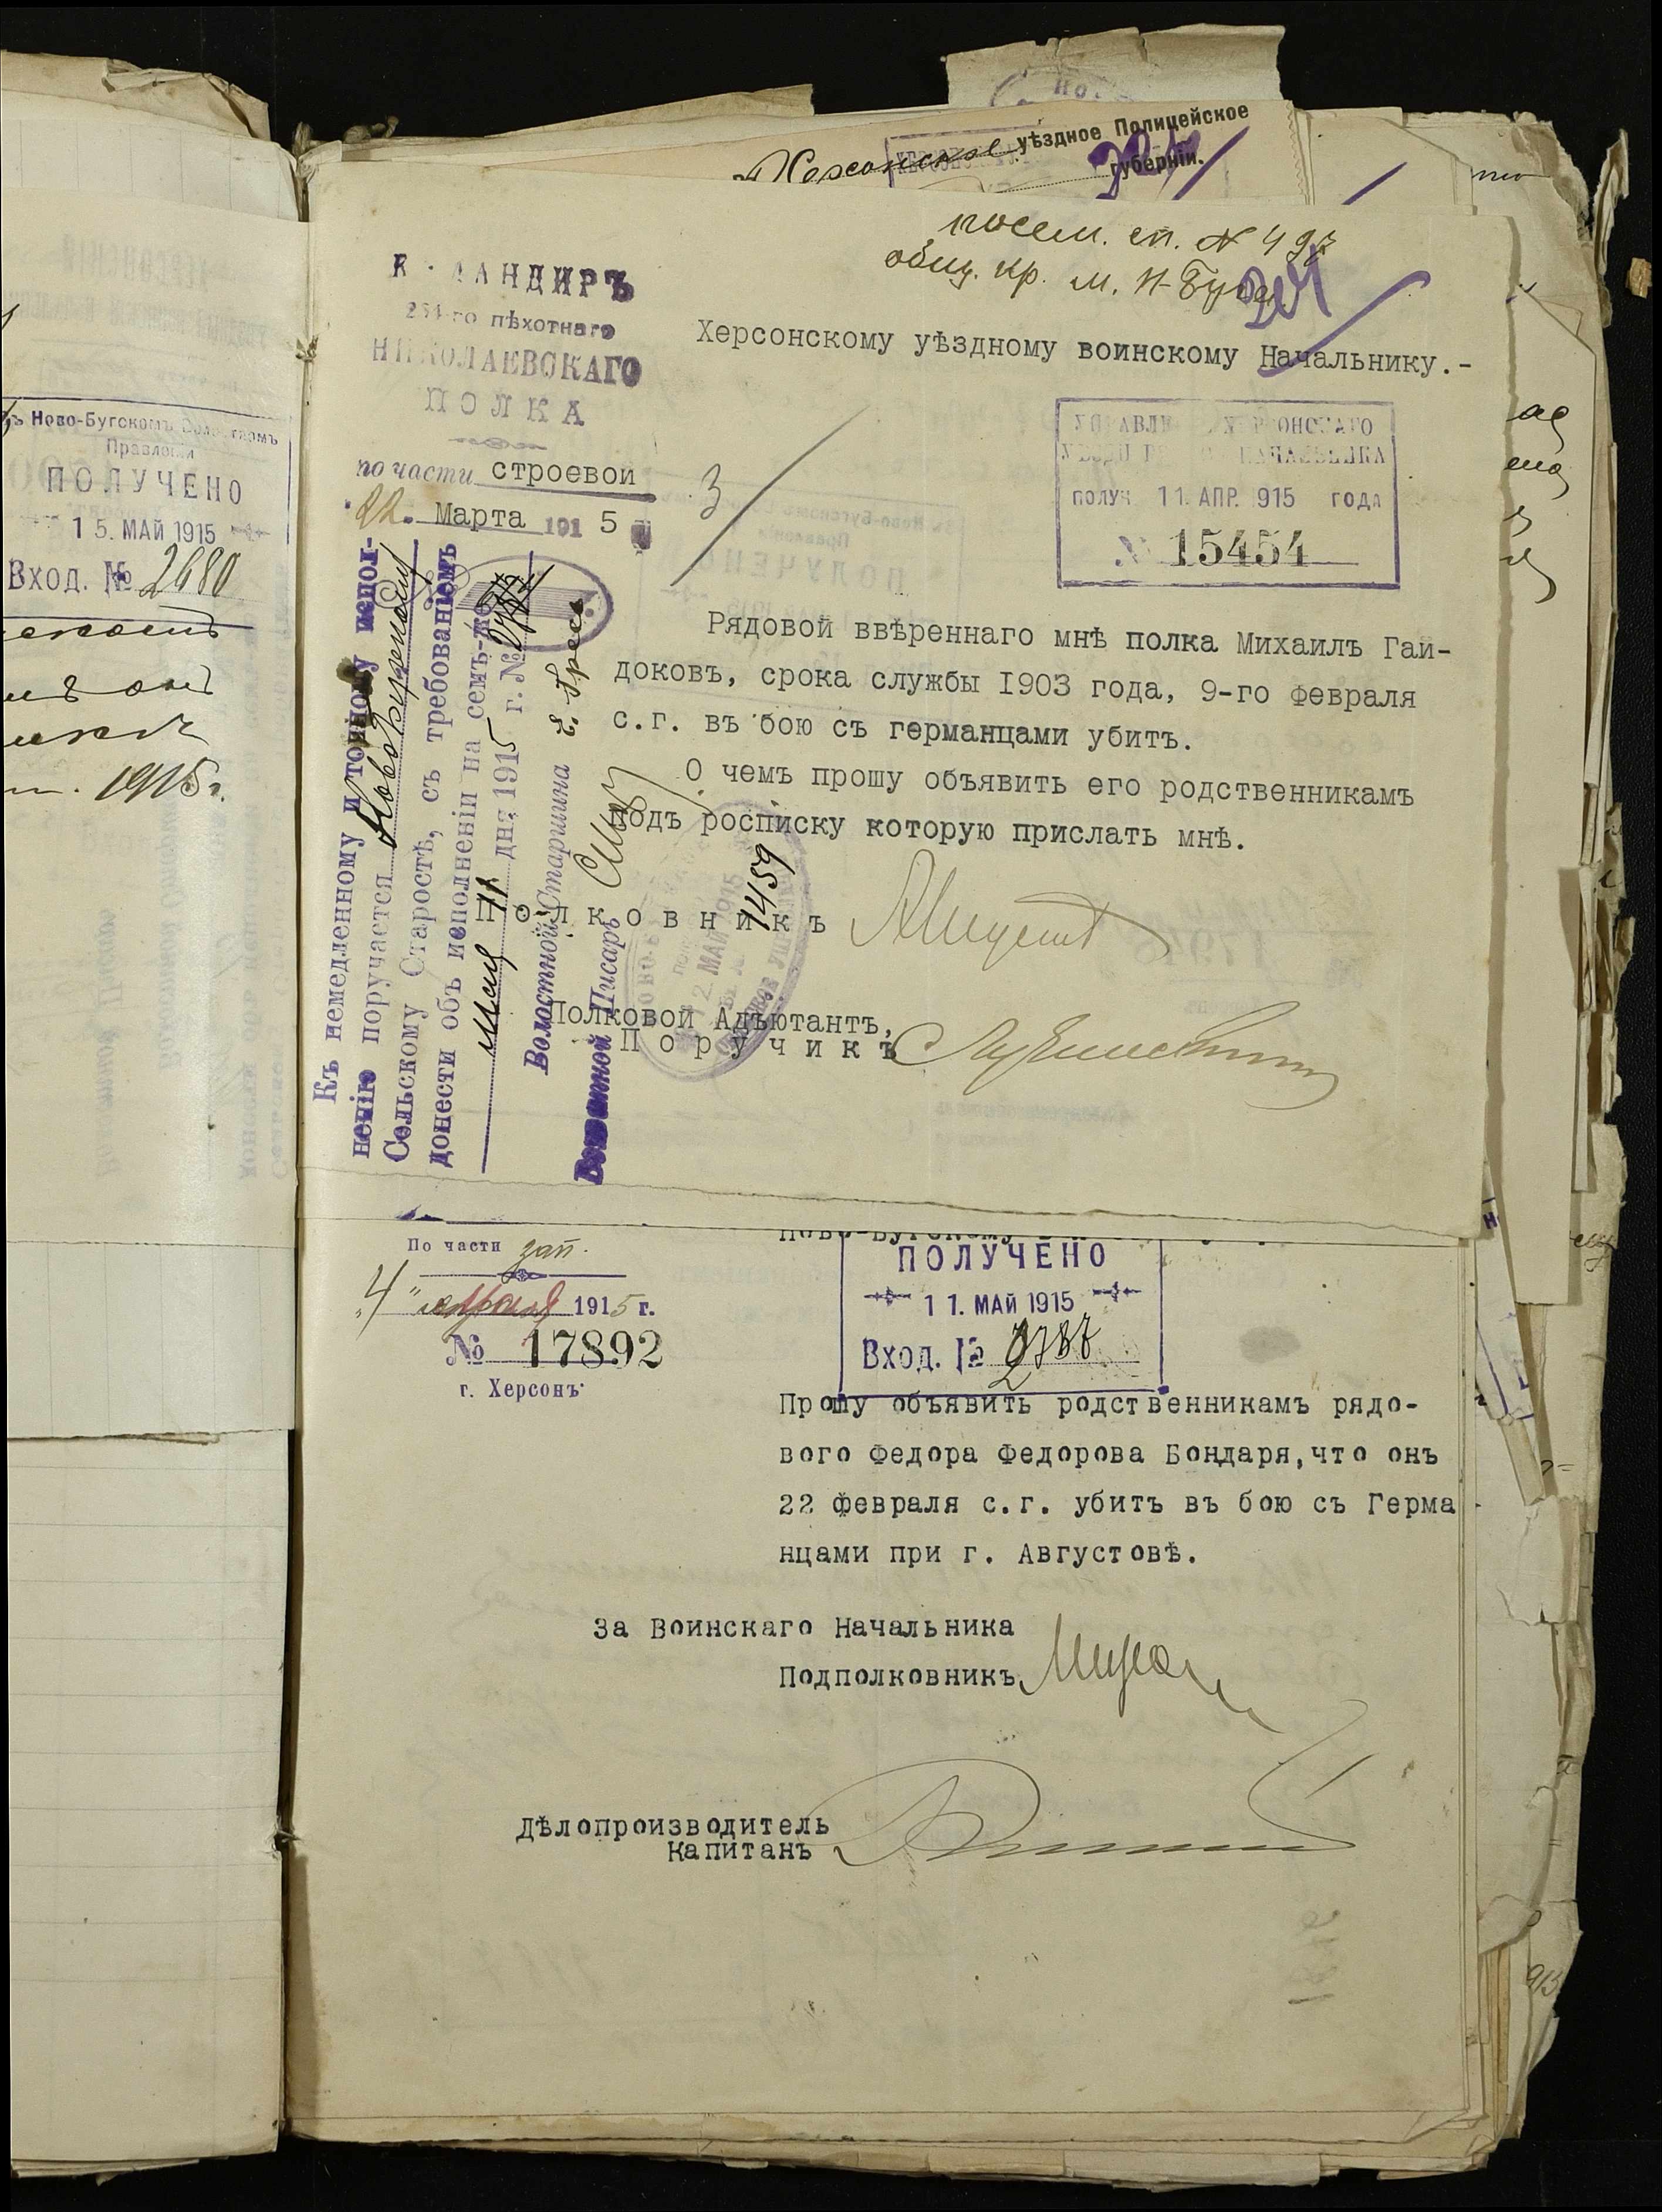 уѣздное Полицейское
губерніи.
посем. сп. № 497
общ. кр. м. Н-Буга
КОМАНДИРЪ
254-го пѣхотнаго
НИКОЛАЕВСКАГО
ПОЛКА
по части строевой
22. Марта 1915
Херсонскому уѣздному воинскому Начальнику.-
УПРАВЛ ХЕРСОНСКАГО
НАЧАЛЬНИКА
ПОЛУЧ 11. АПР. 1915 ГОДА
№ 15454
3
Рядовой ввѣреннаго мнѣ полка Михаилъ Гай-
доковъ, срока службы 1903 года, 9-го Февраля
с.г. въ бою съ германцами убитъ.
О чемъ прошу объявить его родственникамъ
подъ росписку которую прислать мнѣ.
Полковникъ
Полковой Адъютантъ,
Поручикъ
Къ немедленному и точному испол-
ненію поручается
Сельскому Старостѣ, съ требованіемъ
донести объ исполненіи на семъ-же
Мая 11 дня 1915 г. №
Волостной Старшина
Волостной Писарь
12. МАЙ 1915
1459
ъ Ново-Бугскомъ Волостномъ
Правленіи
ПОЛУЧЕНО
15. МАЙ 1915
Вход. № 2680
1915 г.
По части зап.
"4" апрѣля 1915 г.
№ 17892
г. Херсонъ
Ново-Бугскому
ПОЛУЧЕНО
11. МАЙ 1915
Вход. №
Прошу объявить родственникамъ рядо-
вого Федора Федорова Бондаря, что онъ
22 февраля с.г. убитъ въ бою съ Герма
нцами при г. Августовѣ.
За Воинскаго Начальника
Подполковникъ
Дѣлопроизводитель
Капитанъ